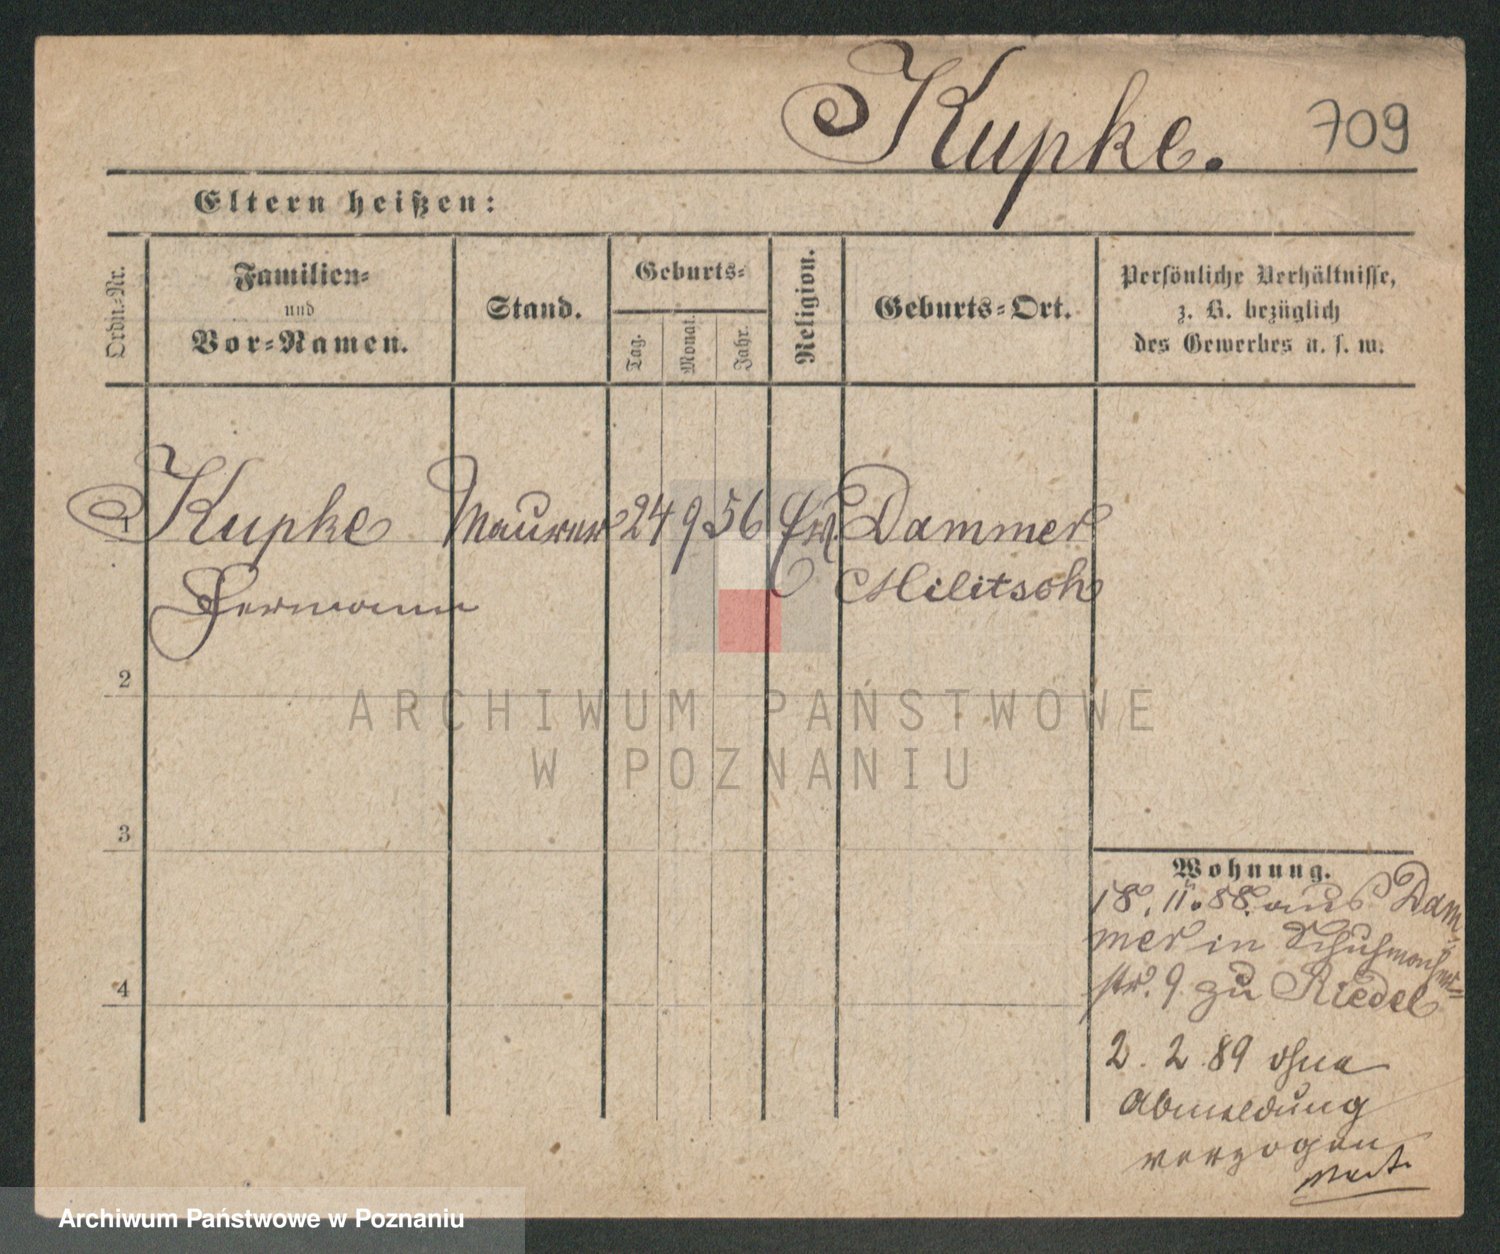 Kupke. 709
Eltern heißen:
Ordn.-Nr.
Familien-
und
Vor-Namen.
Stand.
Geburts-
Tag.
Monat.
Jahr.
Religion.
Geburts-Ort.
Persönliche Verhältnisse,
z. B. bezüglich
des Gewerbes u. s. w.
1 Kupke Maurer 24 9 56 Dammer
Hermann Militsch
2
3
4
Wohnung.
18. 11. 88. aus Dam-
mer in Schuhmacher-
str. 9 zu Riedel
2. 2 89 ohne
Abmeldung
verzogen
ARCHIWUM PAŃSTWOWE
W POZNANIU
Archiwum Państwowe w Poznaniu